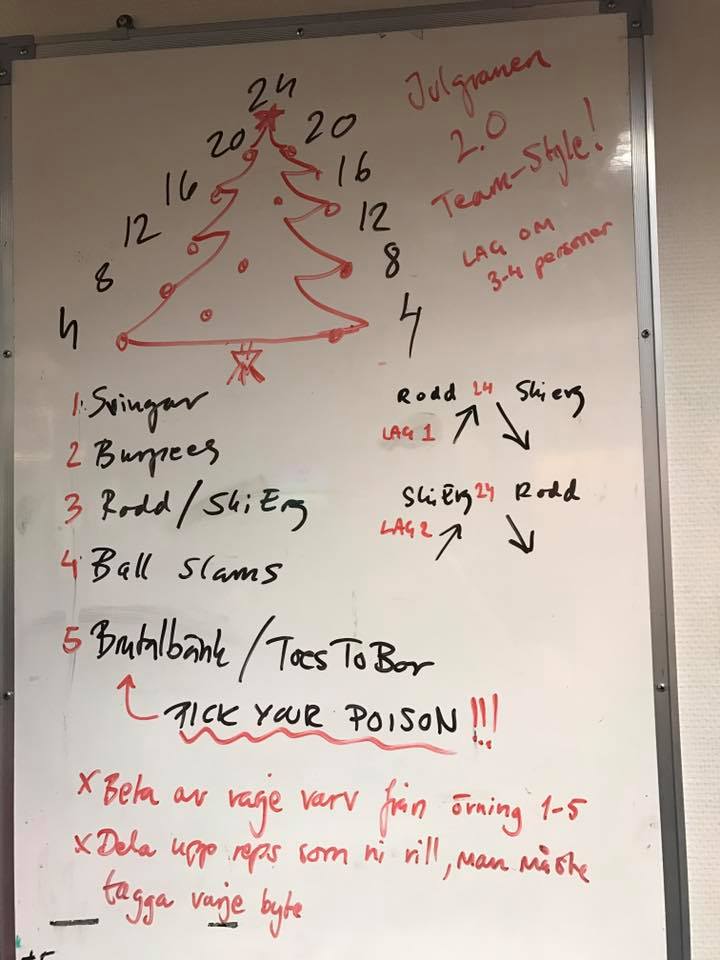 24
20 20
16 16
12 12
8 8
4 4
Julgranen
2.0
Team-Style!
LAG OM
3-4 personer
1 Svingar
2 Burpees
3 Rodd/SkiErg
4 Ball slams
5 Brutalbänk/ToesToBar
PICK YOUR POISON!!!
Rodd 24 Skierg
LAG 1
SkiErg 24 Rodd
LAG 2
x Beta av varje varv från övning 1-5
x Dela upp reps som ni vill, man måste
tagga varje byte